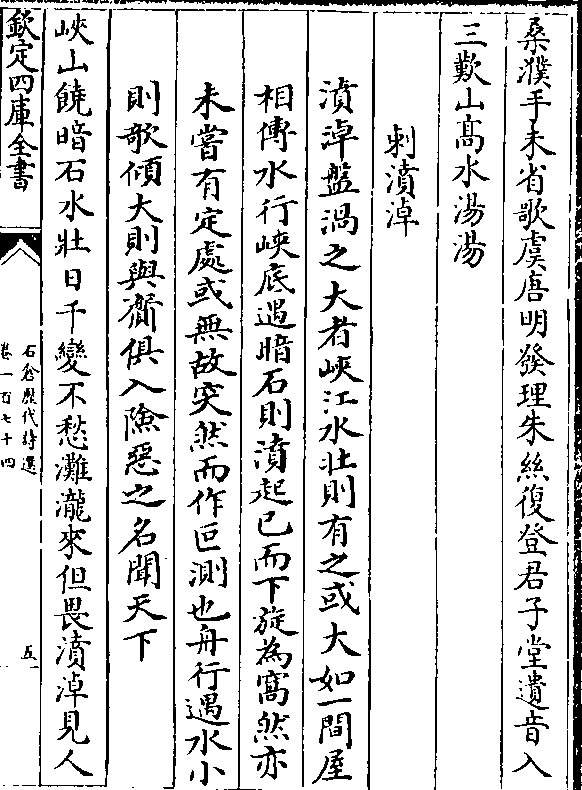 桑濮手未省歌虞唐明發理朱絲復登君子堂遺音入
三歎山髙水湯湯
刺濆淖
濆淖盤渦之大者峽江水壯則有之或大如一間屋
相傳水行峽底遇暗石則濆起已而下旋為窩然亦
未嘗有定處或無故突然而作叵測也舟行遇水小
則欹傾大則與齎俱入險惡之名聞天下
峽山饒暗石水壯日千變不愁灘瀧來但畏濆淖見人
欽定四庫全書
石倉歷代詩選
卷一百七十四
五